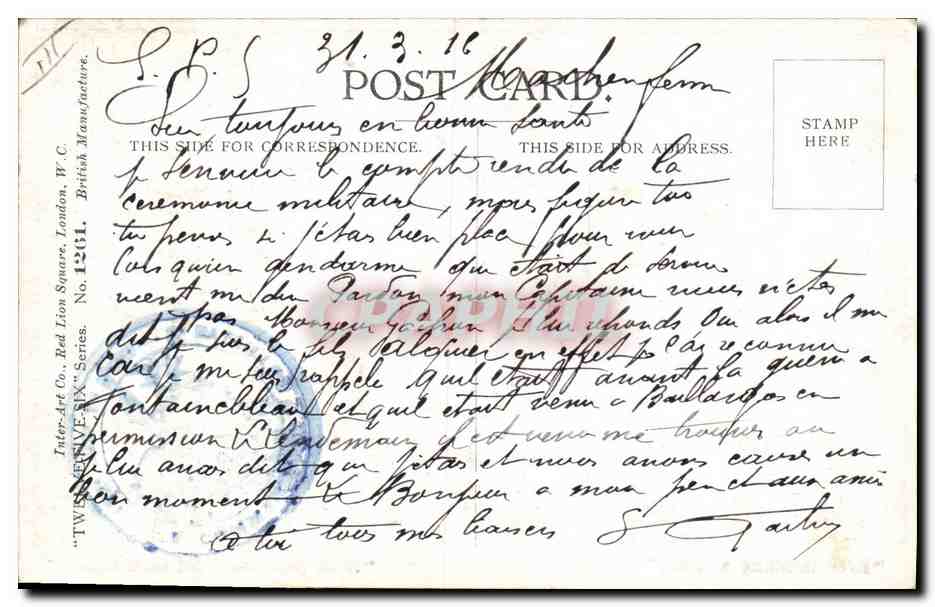 S. P. S 31. 3. 16
POST CARD.
toujours en bonne santé
THIS SIDE FOR CORRESPONDENCE.
THIS SIDE FOR ADDRESS.
STAMP
HERE
je t'envoie le compte rendu de la
ceremonie militaire, mais figure toi
tu penses si j'etais bien placé pour voir
lorsqu'un gendarme qui etait de service
vient me dire Pardon mon Capitaine vous etes
pas Monsieur je lui reponds Oui alors il me
dit je suis le fils en effet je l'ai reconnu
car je me suis rappelé qu'il etait avant la guerre a
Fontainebleau et qu'il etait venu a en
permission Le lendemain il est venu me trouver ou
je lui avais dit que j'etais et nous avons causé un
bon moment Le Bonjour a mon pere et aux amis
a toi tous mes baisers
Inter-Art Co., Red Lion Square, London, W.C.
"TWENTY-FIVE-SIX" Series. No. 1261. British Manufacture.